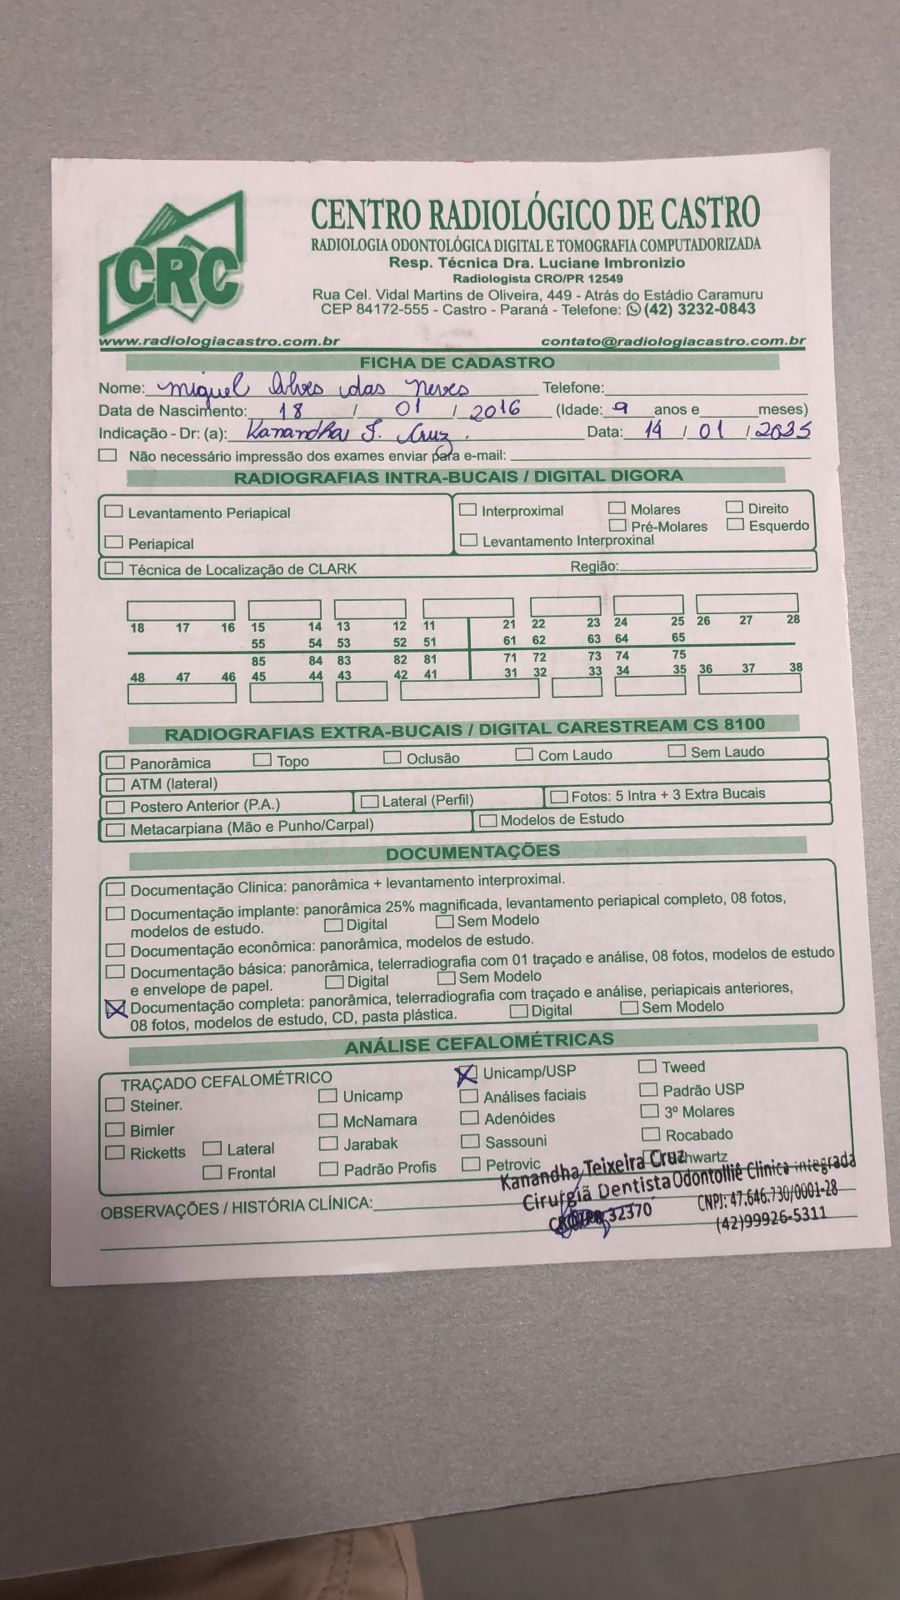 CRC
CENTRO RADIOLÓGICO DE CASTRO
RADIOLOGIA ODONTOLÓGICA DIGITAL E TOMOGRAFIA COMPUTADORIZADA
Resp. Técnica Dra. Luciane Imbronizio
Radiologista CRO/PR 12549
Rua Cel. Vidal Martins de Oliveira, 449 - Atrás do Estádio Caramuru
CEP 84172-555 - Castro - Paraná - Telefone: (42) 3232-0843
www.radiologiacastro.com.br contato@radiologiacastro.com.br
FICHA DE CADASTRO
Nome: Miguel Alves das Neves Telefone:
Data de Nascimento: 18 / 01 / 2016 (Idade: 9 anos e meses)
Indicação - Dr: (a): Kanandha T. Cruz. Data: 14 / 01 / 2025
Não necessário impressão dos exames enviar para e-mail:
RADIOGRAFIAS INTRA-BUCAIS / DIGITAL DIGORA
Levantamento Periapical Interproximal Molares Direito
Pré-Molares Esquerdo
Periapical Levantamento Interproxinal
Técnica de Localização de CLARK Região:
18 17 16 15 14 13 12 11 21 22 23 24 25 26 27 28
55 54 53 52 51 61 62 63 64 65
85 84 83 82 81 71 72 73 74 75
48 47 46 45 44 43 42 41 31 32 33 34 35 36 37 38
RADIOGRAFIAS EXTRA-BUCAIS / DIGITAL CARESTREAM CS 8100
Panorâmica Topo Oclusão Com Laudo Sem Laudo
ATM (lateral)
Postero Anterior (P.A.) Lateral (Perfil) Fotos: 5 Intra + 3 Extra Bucais
Metacarpiana (Mão e Punho/Carpal) Modelos de Estudo
DOCUMENTAÇÕES
Documentação Clinica: panorâmica + levantamento interproximal.
Documentação implante: panorâmica 25% magnificada, levantamento periapical completo, 08 fotos,
modelos de estudo. Digital Sem Modelo
Documentação econômica: panorâmica, modelos de estudo.
Documentação básica: panorâmica, telerradiografia com 01 traçado e análise, 08 fotos, modelos de estudo
e envelope de papel. Digital Sem Modelo
Documentação completa: panorâmica, telerradiografia com traçado e análise, periapicais anteriores,
08 fotos, modelos de estudo, CD, pasta plástica. Digital Sem Modelo
ANÁLISE CEFALOMÉTRICAS
TRAÇADO CEFALOMÉTRICO Unicamp/USP Tweed
Steiner. Unicamp Análises faciais Padrão USP
Bimler McNamara Adenóides 3º Molares
Ricketts Lateral Jarabak Sassouni Rocabado
Frontal Padrão Profis Petrovic
Kanandha Teixeira Cruz
Cirurgiã Dentista
32370
Odontolliê Clinica integrada
CNPJ: 47.646.730/0001-28
(42)99926-5311
OBSERVAÇÕES / HISTÓRIA CLÍNICA: